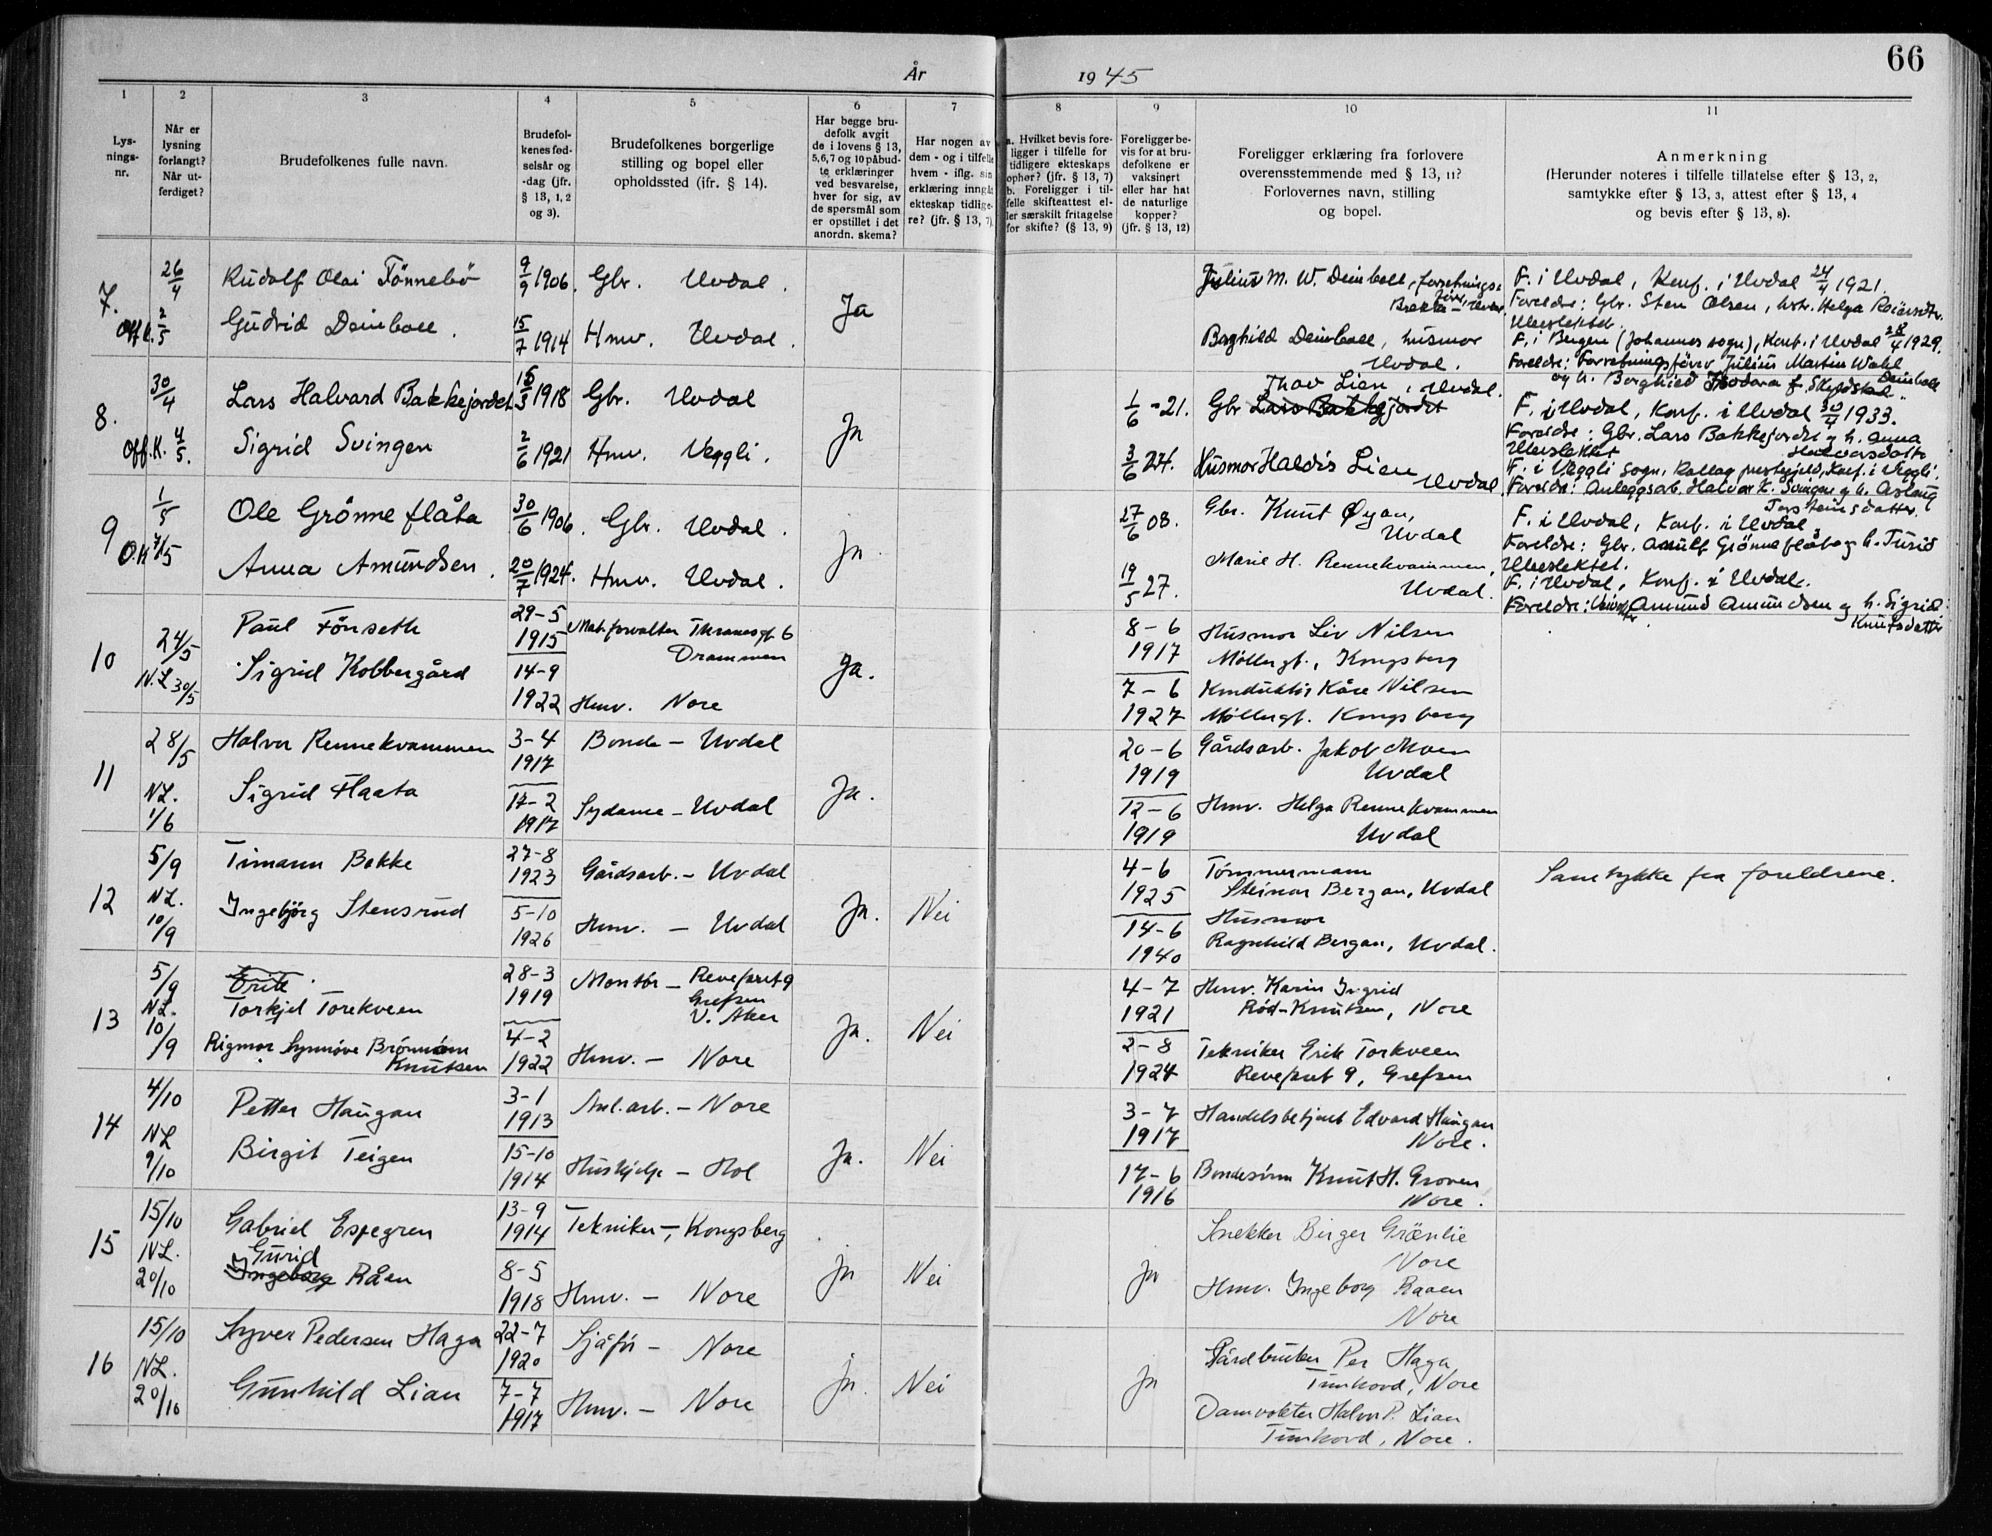 66
År 1945
1 2 3 4 5 6 7 8 9 10 11
Lys-
nings-
nr.
Når er
lysning
forlangt?
Når ut-
ferdiget?
Brudefolkenes fulle navn.
Brudefol-
kenes fød-
selsår og
-dag (jfr.
§ 13, 1, 2
og 3).
Brudefolkenes borgerlige
stilling og bopel eller
opholdssted (ifr. § 14).
Har begge bru-
defolk avgit
de i lovens § 13,
5,6,7 og 10 påbud-
te erklæringer
ved besvarelse,
hver for sig, av
de spørsmål som
er opstillet i det
anordn. skema?
Har nogen av
dem - og i tilfelle
hvem - iflg. sin
erklæring inngått
ekteskap tidlige-
re? (jfr. § 13, 7).
a. Hvilket bevis fore-
ligger i tilfelle for
tidligere ekteskaps
ophør? (jfr. § 13, 7)
b. Foreligger i til-
felle skifteattest el-
ler særskilt fritagelse
for skifte? (§ 13, 9)
Foreligger be-
vis for at bru-
defolkene er
vaksinert
eller har hat
de naturlige
kopper?
(jfr. § 13, 12)
Foreligger erklæring fra forlovere
overensstemmende med § 13, 11?
Forlovernes navn, stilling
og bopel.
Anmerkning
(Herunder noteres i tilfelle tillatelse efter § 13, 2,
samtykke efter § 13, 3, attest efter § 13, 4
og bevis efter § 13, 8).
7. 26/4 Rudolf Olai Tönnebö 9/9 1906. Gbr. Uvdal. Ja
2/5 Gudrid Deinboll. 15/7 1914 Hmv. Uvdal.
Julius M. W. Deinboll, forretnings-
Borghild Deinboll, husmor
Uvdal.
F. i Uvdal, Konf. i Uvdal 24/4 1921.
Foreldre: Gbr. Sten Olsen, hstr. Helga
Uleslektet.
F. i Bergen (Johannes sogn), Konf. i Uvdal 28/4 1929.
Foreldre: Forretningsförer Julius Martin Wahl
Deinboll
og h. Borghild
8. 30/4 Lars Halvard Bakkejordet 15/3 1918 Gbr. Uvdal Ja
Off.K. 4/5. Sigrid Svingen 2/6 1921 Hmv. Veggli.
1/6 -21. Gbr Lars Bakkejordet
Thov Lien, Uvdal.
3/6 27. Husmor Haldis Lien
Uvdal
F. i Uvdal, Konf. i Uvdal 30/4 1933.
Foreldre: Gbr. Lars Bakkejordet og h. Anna
Uleslektet Halvorsdatter
F. i Veggli sogn, Rollag prestegjeld, Konf. i Veggli.
Foreldre: Anleggsarb. Halvor K. Svingen og h. Aslaug
Torsteinsdatter.
9 1/5 Ole Grönneflåta 30/6 1906. Gbr. Uvdal. Ja
Anna Amundsen. 20/7 1924. Hmv. Uvdal.
27/6 08. Gbr. Knut Øygan,
Uvdal
19/5 27. Marie H. Rennekvammen,
Uvdal.
F. i Uvdal, Konf. i Uvdal
Foreldre: Gbr. Grönneflåta og h. Turid
Uleslektet.
F. i Uvdal, Konf. i Uvdal.
Foreldre: Amund Amundsen og h. Sigrid
Knutsdatter
10 24/5 Paul Fönseth 29-5 1915 Mat.forvalter Thranesgt 6
Drammen Ja.
N.L 30/5 Sigrid Kobbergård 14-9 1922 Hmv. Nore
8-6 1917 Husmor Liv Nilsen
Møllergt., Kongsberg
7-6 1927 Konduktör Kåre Nilsen
Møllergt. Kongsberg
11 28/5 Halvor Rennekvammen 3-4 1917 Bonde - Uvdal Ja.
NL. 1/6 Sigrid Flaata 17-2 1917 Sydame - Uvdal
20-6 1919 Gårdsarb. Jakob Moen
Uvdal
12-6 1919 Hmv. Helga Rennekvammen
Uvdal
12 5/9 Timann Bakke 27-8 1923 Gårdsarb. - Uvdal Ja. Nei
NL. 10/9 Ingebjörg Stensrud 5-10 1926 Hmv. - Uvdal
4-6 1925 Tømmermann
Steinar Bergan, Uvdal
14-6 1940 Husmor
Ragnhild Bergan, Uvdal.
Samtykke fra foreldrene.
13 5/9 Erik
NL. Torkjel Torekveen 28-3 1919 Montör - Reveforet 9
Grefsen
V. Aker Ja. Nei
10/9 Rigmor Synnöve Brönmoen
Knutsen 4-2 1922 Hmv. - Nore
4-7 1921 Hmv. Karin Ingrid
Rød-Knutsen, Nore
2-8 1924 Tekniker Erik Torkveen
Reveforet 9, Grefsen
14 4/10 Petter Haugan 3-1 1913 Anl.arb. - Nore Ja. Nei
NL 9/10 Birgit Teigen 15-10 1914 Hushjelp - Hol
3-7 1917 Handelsbetjent Edvard Haugan
Nore.
17-6 1916 Bondesönn Knut H. Groven
Nore.
15 15/10 Gabriel Espegren 13-9 1914 Tekniker -, Kongsberg Ja Nei
NL. 20/10 Gurid
Ingeborg Råen 8-5 1918 Hmv. - Nore
Ja Snekker Birger Grönlie
Nore
Hmv. Ingeborg Raaen
Nore
16 15/10 Syver Pedersen Haga 22-7 1920 Sjåför - Nore Ja. Nei
NL. 20/10 Gunhild Lian 7-7 1917 Hmv. - Nore
Ja Gårdbruker Per Haga
Tunhovd, Nore
Damvokter Halvor P. Lian
Tunhovd, Nore.